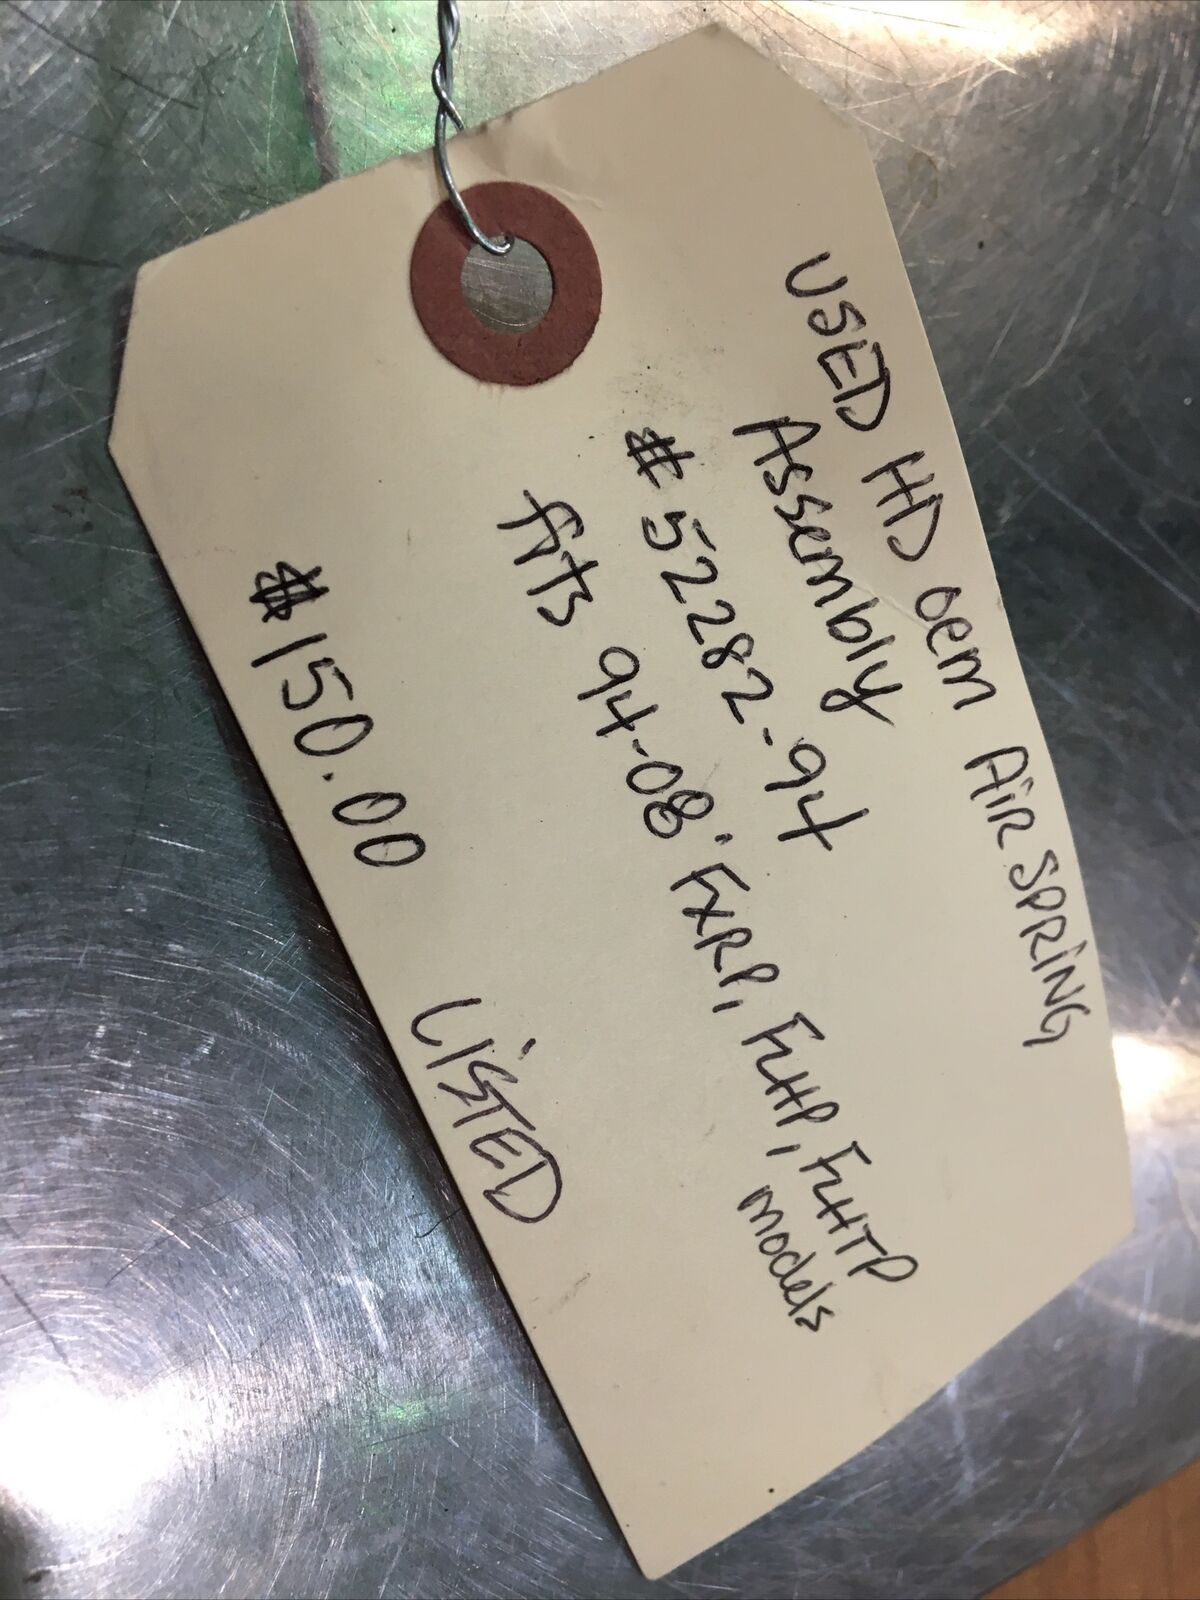 USED HD oem AiR SPRiNG
Assembly
# 52282-94
fits 94-08. FXRP, FLHP, FLHTP
models
$150.00 LiSTED